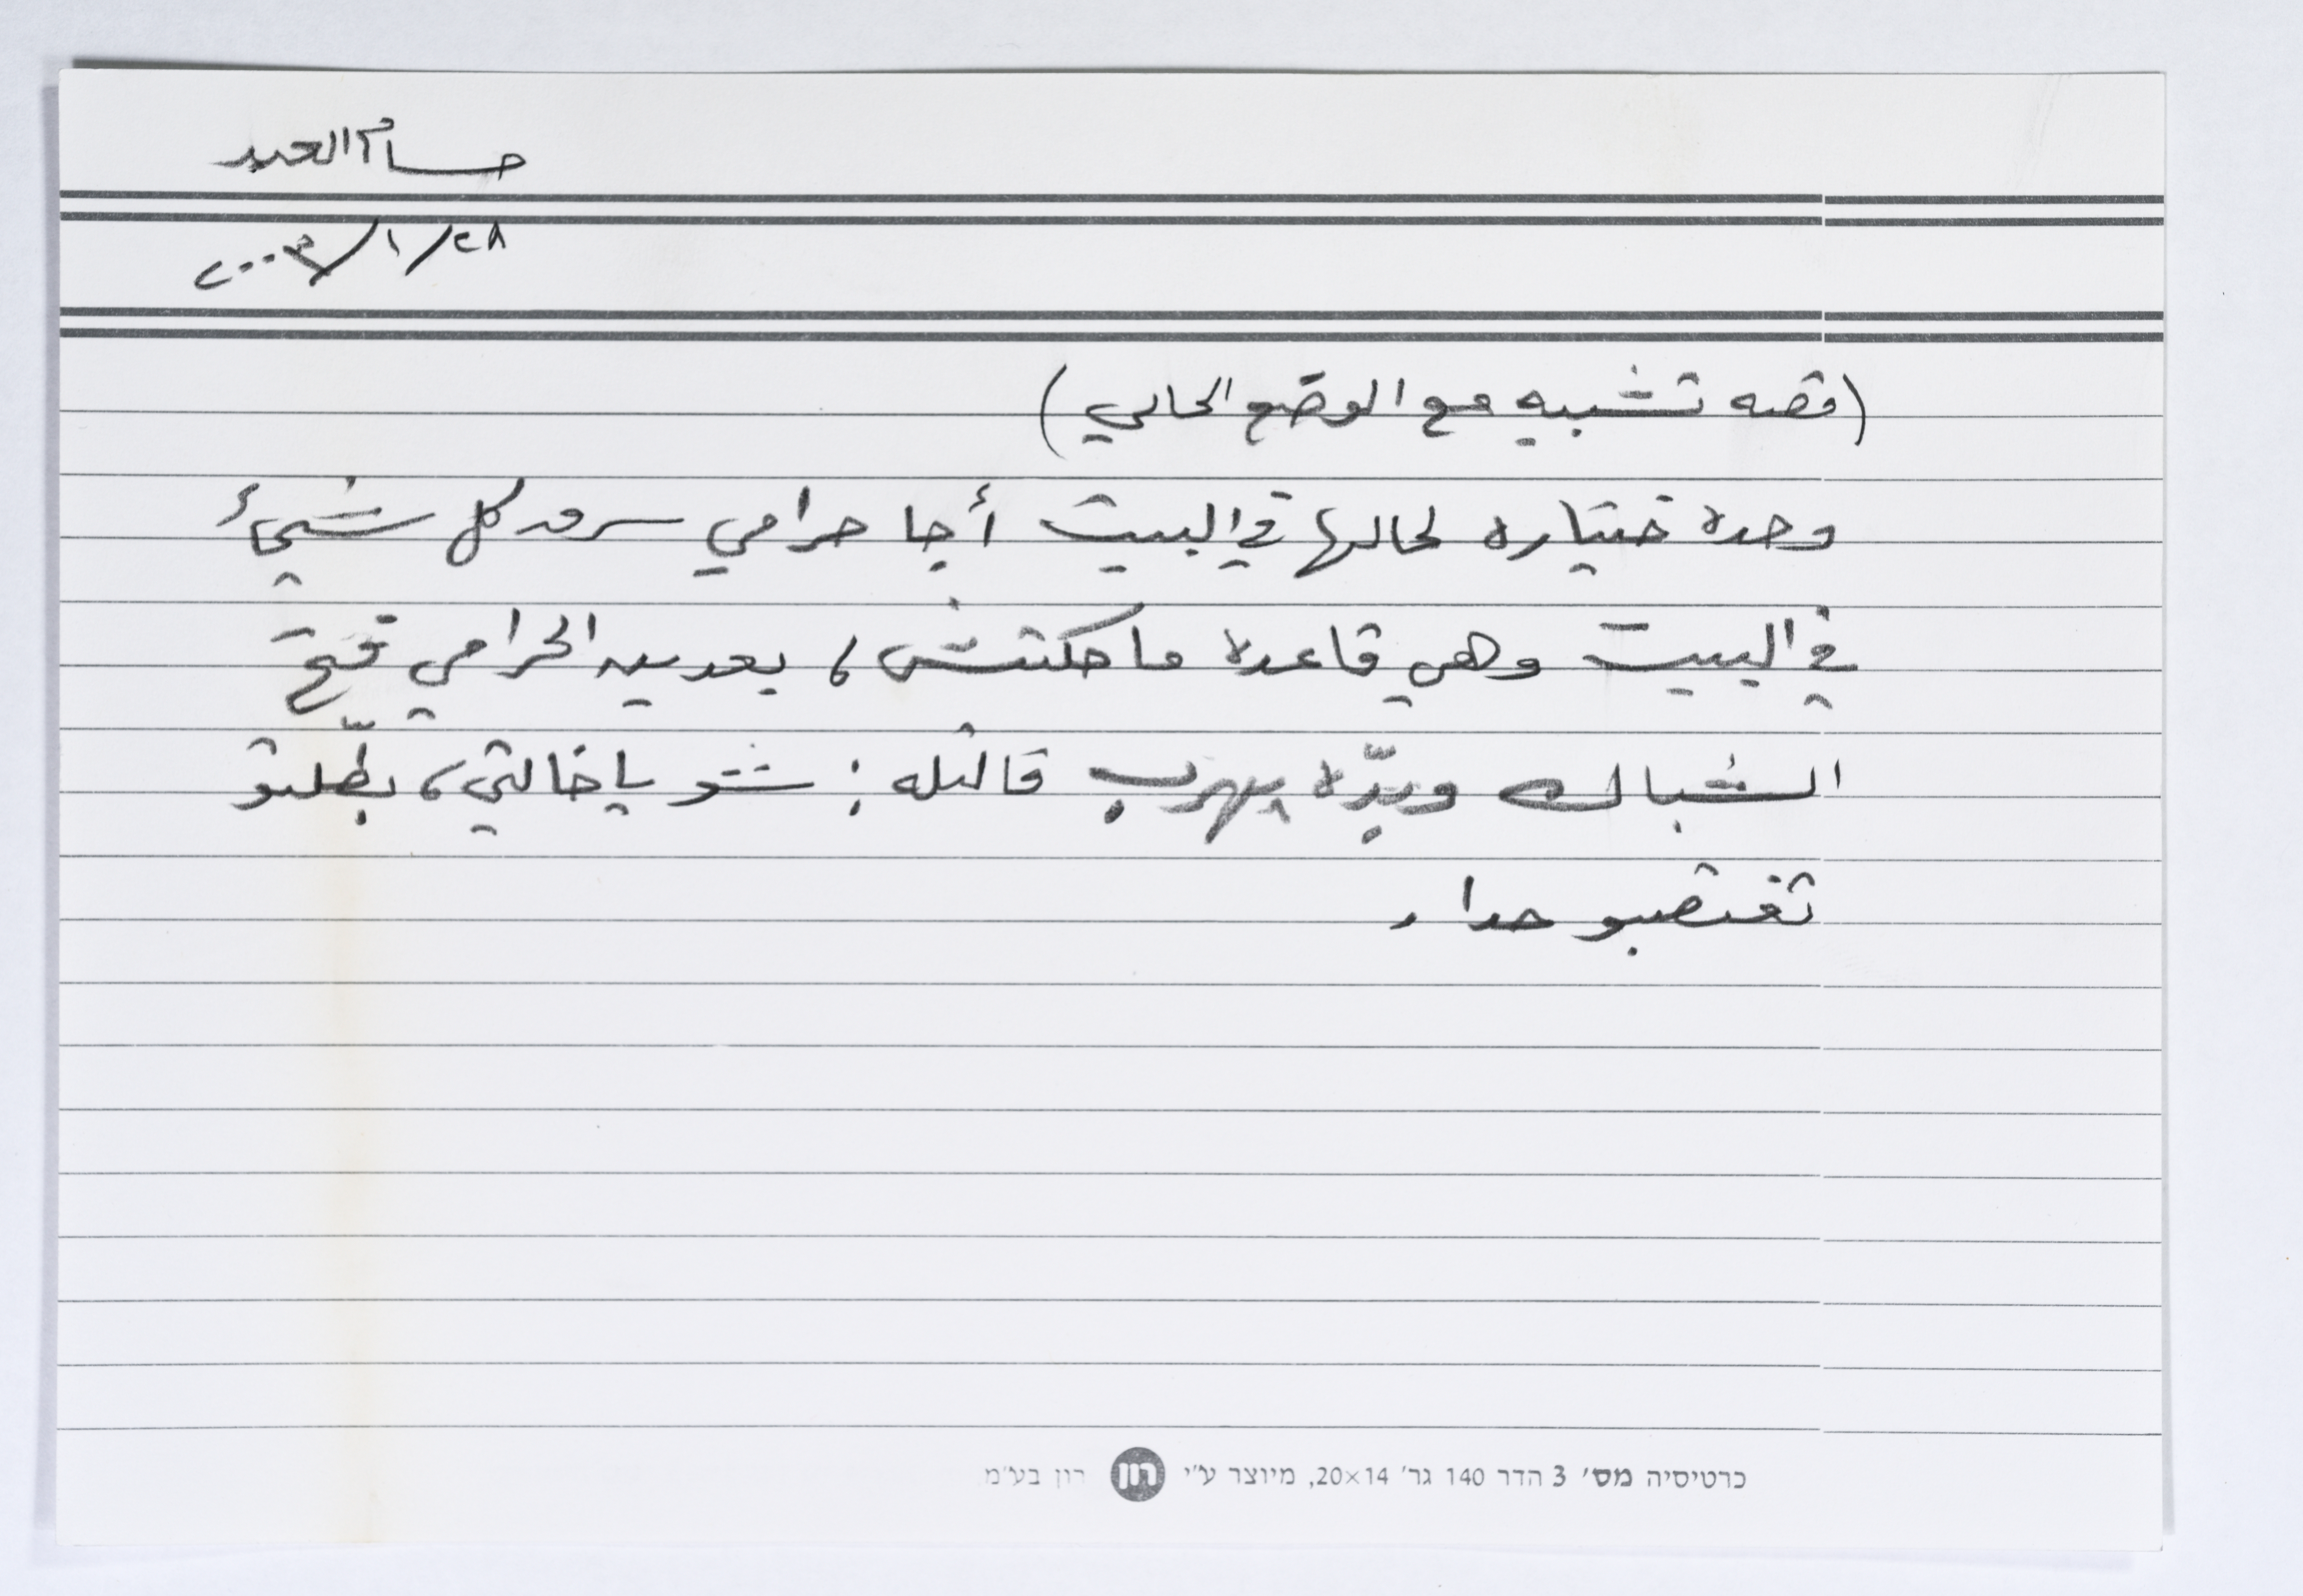 حسام العبد
٢٨/١/٢٠٠٣
(قصه تشبيه مع الوضع الحالي)
وحدة ختياره لحالها في البيت أجا حرامي سرق كل شيئ
في البيت وهي قاعدة ما حكتش، بعدين الحرامي فتح
الشباك وبدّه يهرب قالتله: شو يا خالتي، بطّلتو
تغتصبو حدا.
כרטיסיה מס׳ 3 הדר 140 גר׳ 20×14, מיוצר ע״י רון רון בע״מ